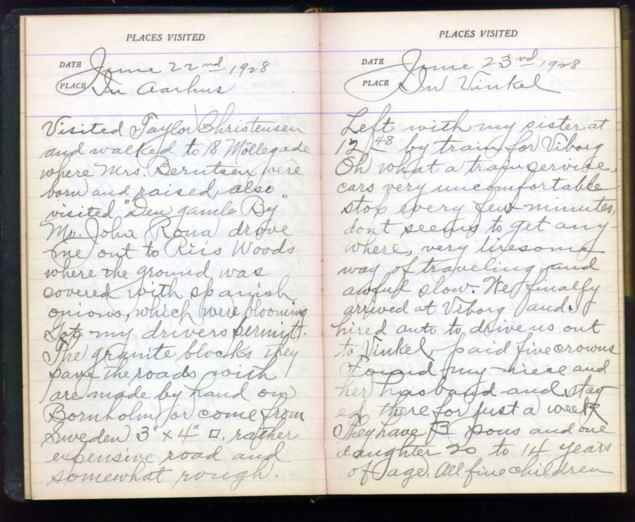 PLACES VISITED
DATE June 22nd 1928
PLACE In Aarhus
Visited Taylor Christensen
and walked to 18 Möllegade
where Mrs. Berntsen were
born and raised, also
visited "Den gamle By
Mr. John Rona drove
me out to Riis Woods
where the ground was
covered with spanish
onions, which were blooming
Got my drivers permitt.
The granite blocks they
pave the roads with
are made by hand on
Bornholm or come from
Sweden 3" x 4" □. rather
expensive road and
somewhat rough.
PLACES VISITED
DATE June 23rd 1928
PLACE In Vinkel
Left with my sister at
12 48 by train for Viborg
Oh what a train service
cars very uncomfortable
stop every few minutes,
dont seems to get any-
where, very tiresome
way of traveling and
awful slow. We finally
arrived at Viborg and
hired auto to drive us out
to Vinkel paid five crowns
Found my niece and
her husband and stay
ed there for just a week
They have sons and one
daughter 20 to 14 years
of age. All fine children